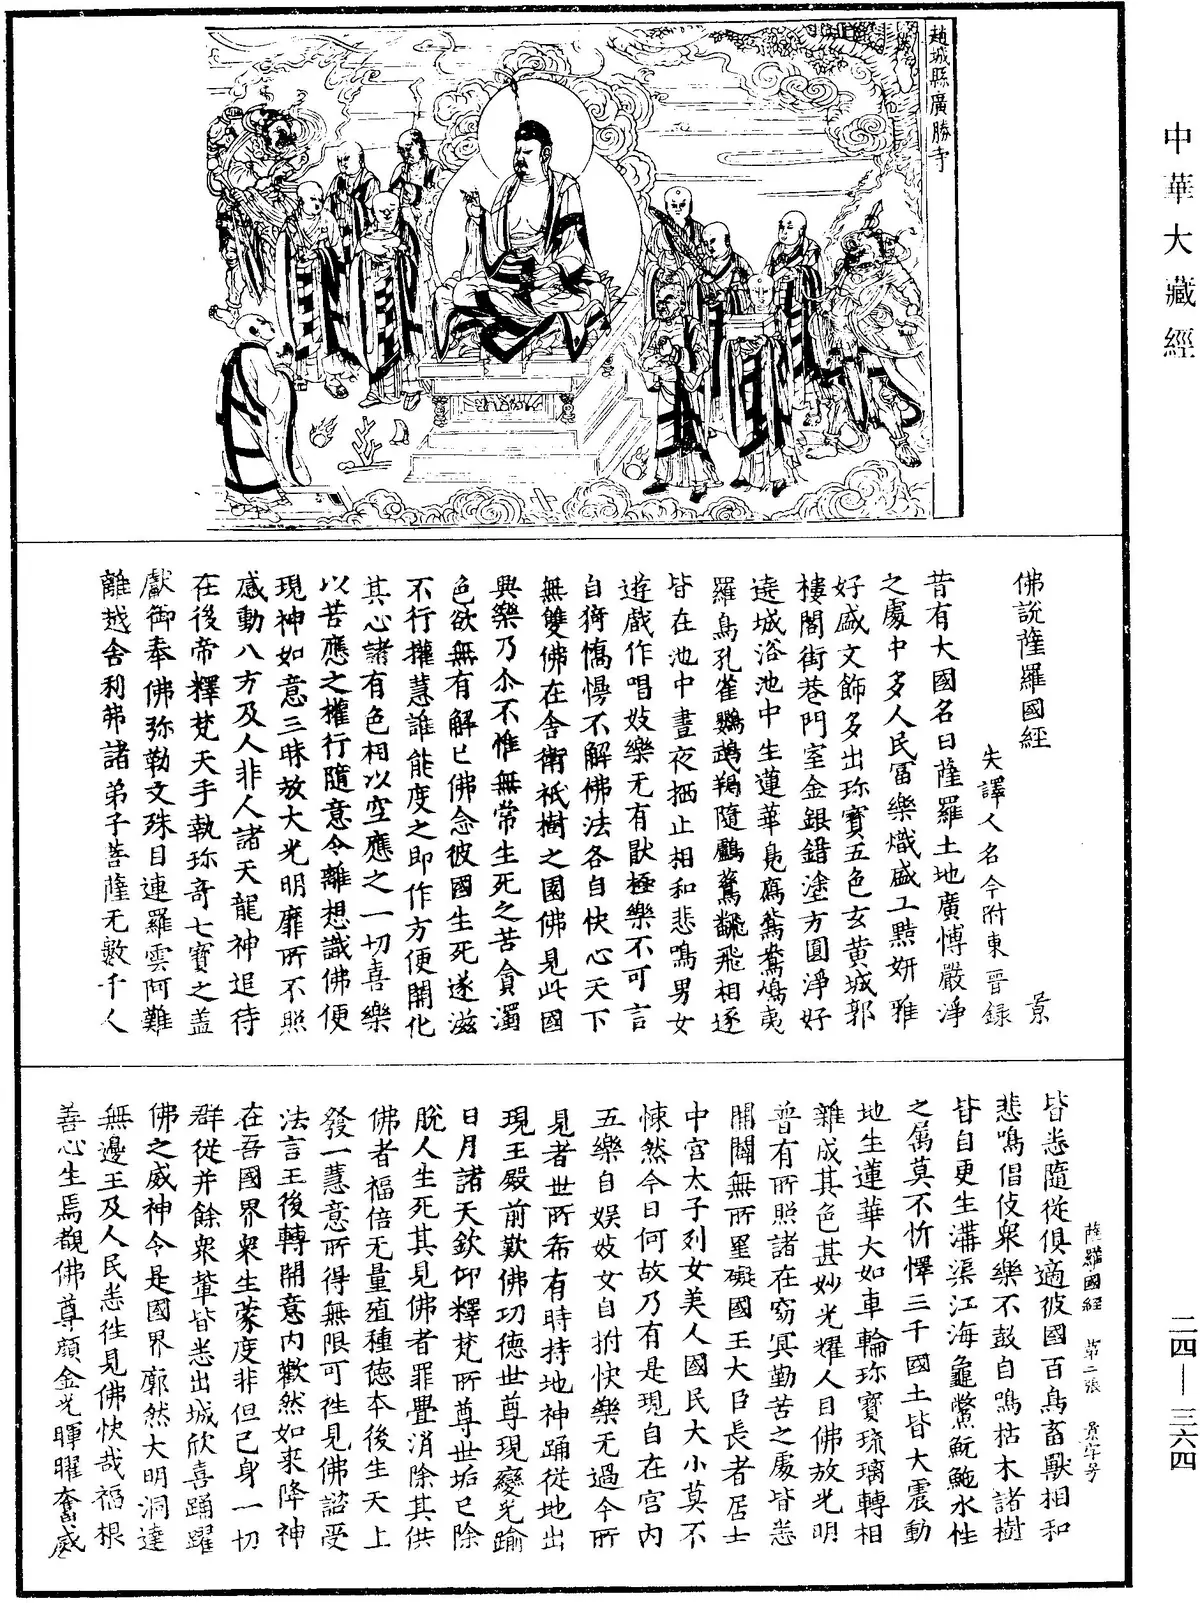 中華大藏經
趙城縣廣勝寺
佛說薩羅國經　景
失譯人名今附東晉錄
昔有大國名曰薩羅土地廣博嚴淨
之處中多人民冨樂熾盛工黠妍雅
好盛文飾多出珎寶五色玄黃城郭
樓閣街巷門室金銀錯塗方圓淨好
遶城浴池中生蓮華鳧鴈鴛鴦鳩夷
羅鳥孔雀鸚鵡鶡隨鸝鷔翻飛相逐
皆在池中晝夜栖止相和悲鳴男女
遊戲作唱妓樂无有猒極樂不可言
自猗憍慢不解佛法各自快心天下
無雙佛在舍衛祇樹之園佛見此國
興樂乃尒不惟無常生死之苦貪濁
色欲無有解已佛念彼國生死遂滋
不行權慧誰能度之即作方便開化
其心諸有色相以空應之一切喜樂
以苦應之權行隨意令離想識佛便
現神如意三昧放大光明靡所不照
感動八方及人非人諸天龍神追待
在後帝釋梵天手執珎奇七寶之盖
獻御奉佛弥勒文殊目連羅雲阿難
離越舍利弗諸弟子菩薩无數千人
皆悉隨從俱適彼國百鳥畜獸相和
悲鳴倡伎衆樂不鼓自鳴枯木諸樹
皆自更生溝渠江海龜鱉魭鮀水性
之属莫不忻懌三千國土皆大震動
地生蓮華大如車輪珎寶琉璃轉相
雜成其色甚妙光耀人目佛放光明
普有所照諸在窈冥勤苦之處皆悉
開闢無所罣礙國王大臣長者居士
中宮太子列女美人國民大小莫不
悚然今日何故乃有是現自在宮内
五樂自娱妓女自拊快樂无過今所
見者世所希有時持地神踊從地出
現王殿前歎佛㓛德世尊現變光踰
日月諸天欽仰釋梵所尊世垢已除
脫人生死其見佛者罪疊消除其供
佛者福倍无量殖種德本後生天上
發一慧意所得無限可往見佛諮受
法言王後轉開意内歡然如來降神
在吾國界衆生蒙度非但己身一切
群從并餘衆輩皆悉出城欣喜踊躍
佛之威神令是國界廓然大明洞達
無邊王及人民悉往見佛快哉福根
善心生焉覩佛尊顔金光暉曜奮威
薩羅國經　第二張　景字号
二四—三六四